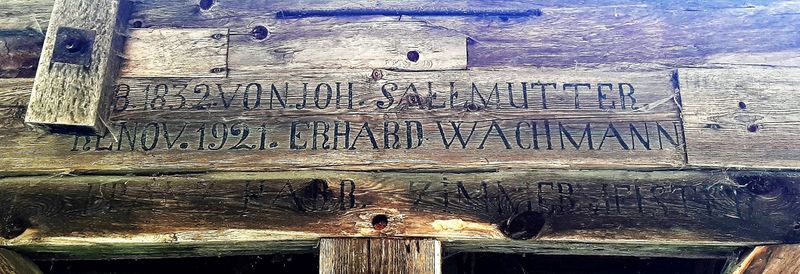 B. 1832. VON. JOH. SALLMUTTER
RENOV. 1921. ERHARD WACHMANN
HABR. ZIMMERMEISTER